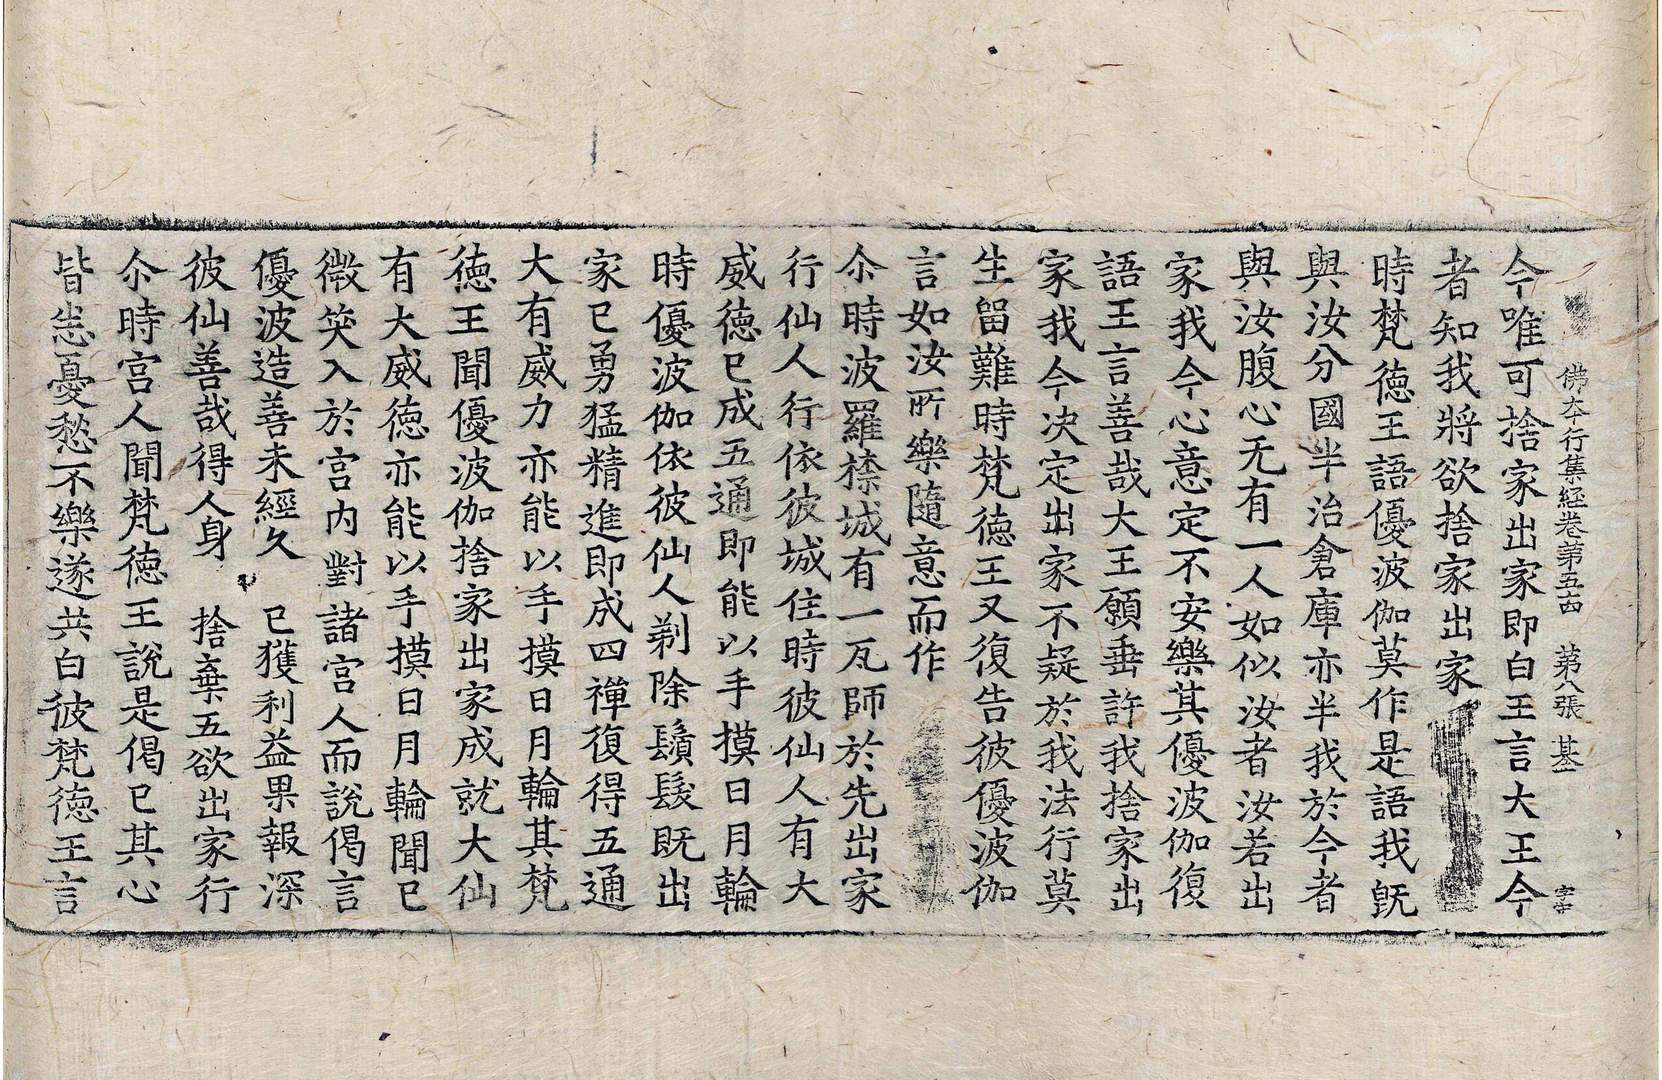 佛本行集經卷第五十四 第八張 基
今唯可捨家出家即白王言大王今
者知我將欲捨家出家
時梵徳王語優波伽莫作是語我旣
與汝分國半治倉庫亦半我於今者
與汝腹心无有一人如似汝者汝若出
家我今心意定不安樂其優波伽復
語王言善哉大王願垂許我捨家出
家我今决定出家不疑於我法行莫
生留難時梵徳王又復告彼優波伽
言如汝所樂隨意而作
尒時波羅㮈城有一瓦師於先出家
行仙人行依彼城住時彼仙人有大
威徳已成五通即能以手摸日月輪
時優波伽依彼仙人剃除鬚髮旣出
家已勇猛精進即成四禪復得五通
大有威力亦能以手摸日月輪其梵
徳王聞優波伽捨家出家成就大仙
有大威徳亦能以手摸日月輪聞已
微笑入於宮內對諸宮人而說偈言
優波造善未經久 已獲利益果報深
彼仙善哉得人身 捨棄五欲出家行
尒時宮人聞梵徳王說是偈已其心
皆悉憂愁不樂遂共白彼梵徳王言